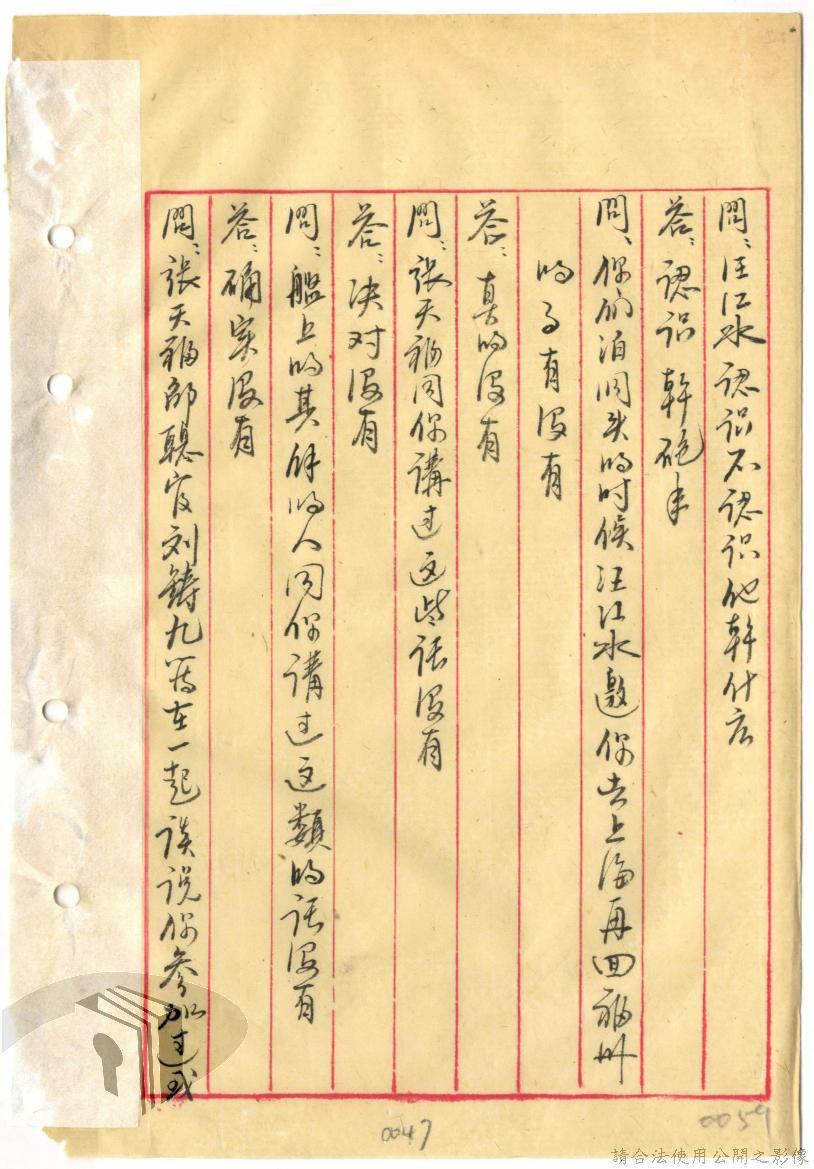 問：汪江水認识不認识他幹什広
答：認识 幹砲手
問、你们泊閃头的时候汪江水邀你去上海再回福州
的了有没有
答：真的没有
問：张天福同你講过这些话没有
答：决对没有
問：艦上的其餘的人同你講过这類的话没有
答：确实没有
問：張天福郎聽官刘鑄九等在一起谈说你參加过或
0047
0059
請合法使用公開之影像